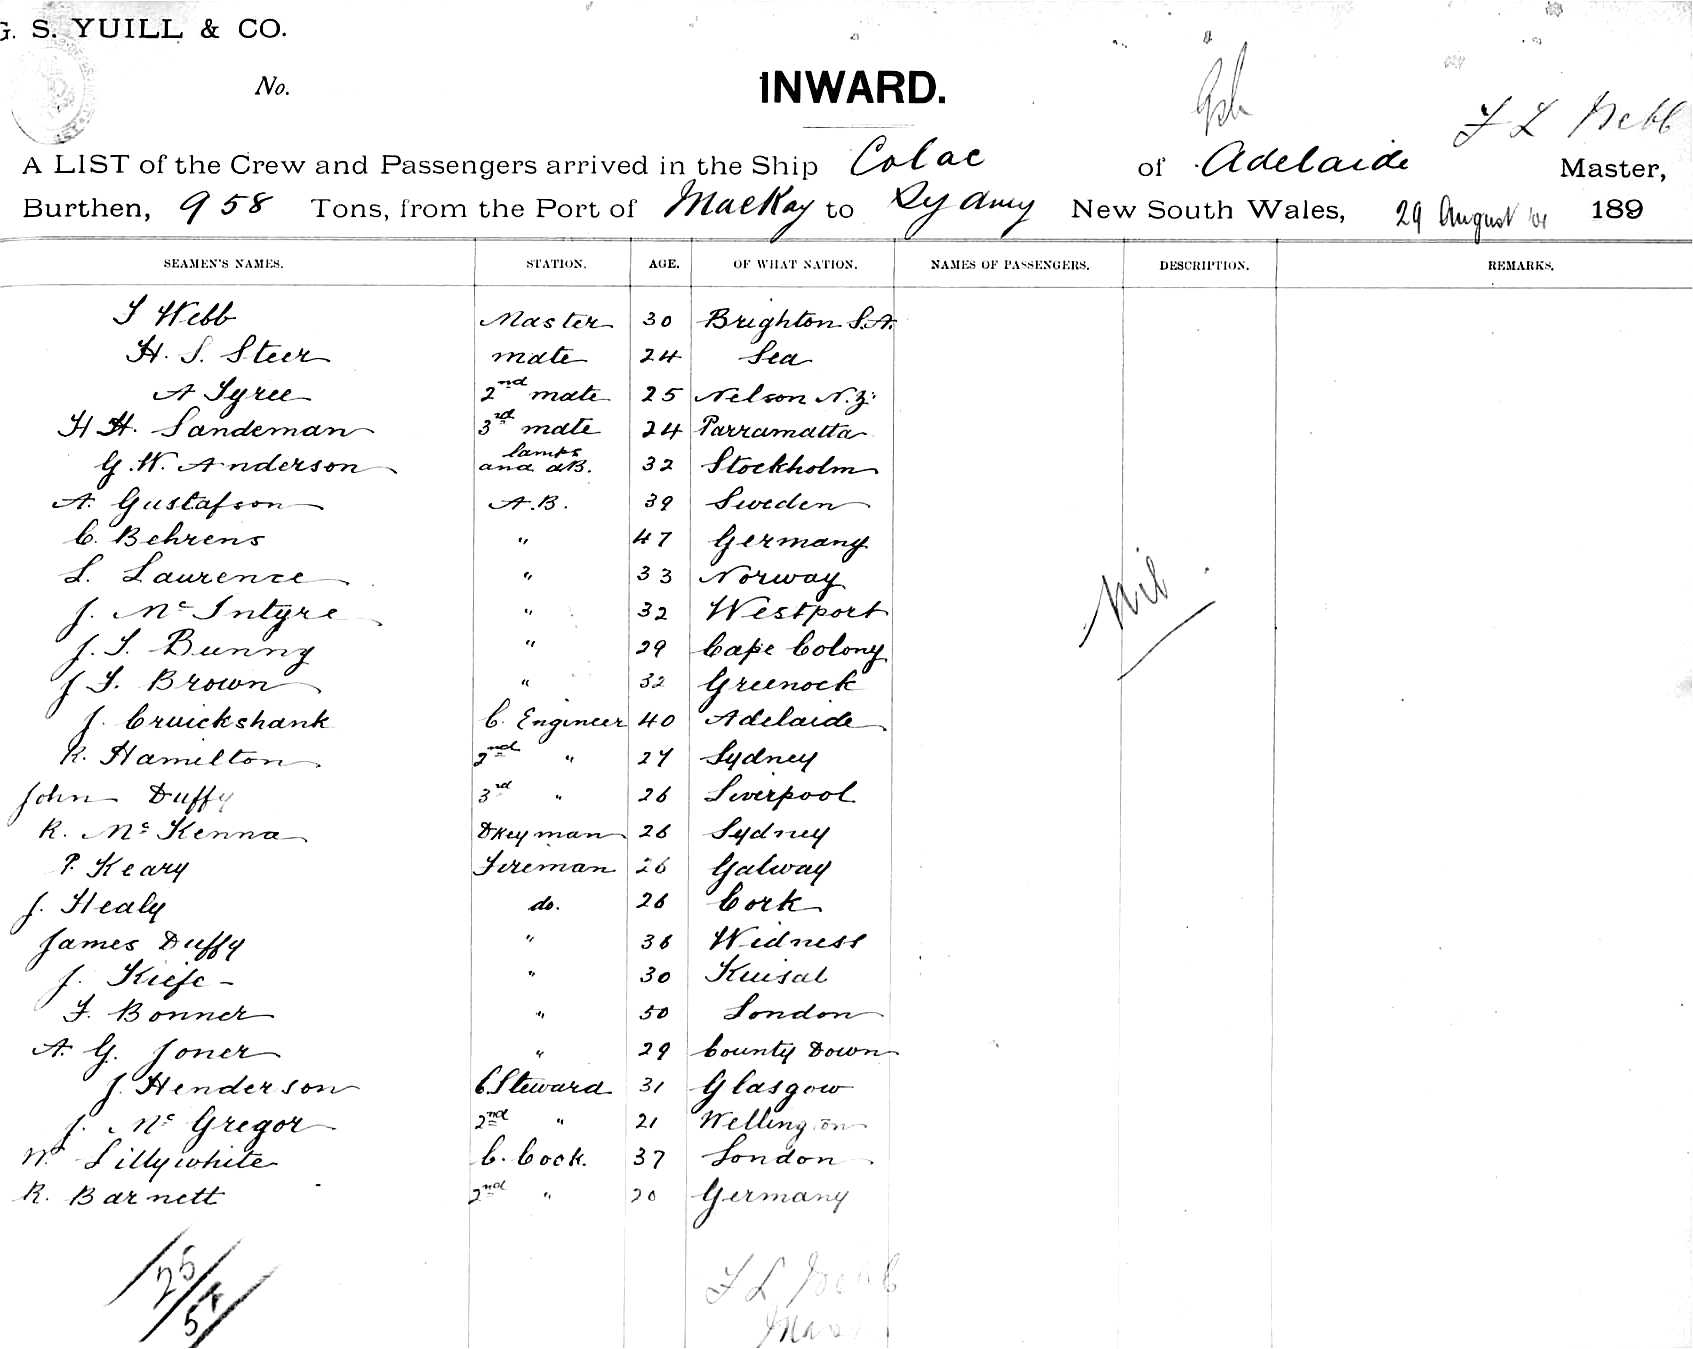 G. S. YUILL & CO.
No.
INWARD.
F L Webb
A LIST of the Crew and Passengers arrived in the Ship Colac of Adelaide Master,
Burthen, 958 Tons, from the Port of MacKay to Sydney New South Wales, 29 August 189
SEAMEN'S NAMES. STATION. AGE. OF WHAT NATION. NAMES OF PASSENGERS. DESCRIPTION. REMARKS.
F Webb Master 30 Brighton S.A.
H. S. Steer mate 24 Sea
A Tyree 2nd mate 25 Nelson N.Z.
H H. Sandeman 3rd mate 24 Parramatta
G. W. Anderson lamps and AB. 32 Stockholm
A. Gustafson A.B. 39 Sweden
C. Behrens " 47 Germany
L. Laurence " 33 Norway
J. Mc Intyre " 32 Westport
J. T. Bunny " 29 Cape Colony
J T. Brown " 32 Greenock
J. Cruickshank C. Engineer 40 Adelaide
R. Hamilton 2nd " 27 Sydney
John Duffy 3rd " 26 Liverpool
R. Mc Kenna Dkeyman 26 Sydney
P. Keary Fireman 26 Galway
J. Healy do. 26 Cork
James Duffy " 36 Widness
J. Kiefe - " 30 Kuisal
F. Bonner " 50 London
A. G. Joner " 29 County Down
J. Henderson C. Steward 31 Glasgow
J. Mc Gregor 2nd " 21 Wellington
W. Lillywhite C. Cook. 37 London
R. Barnett 2nd " 20 Germany
Nil
25
F L Webb